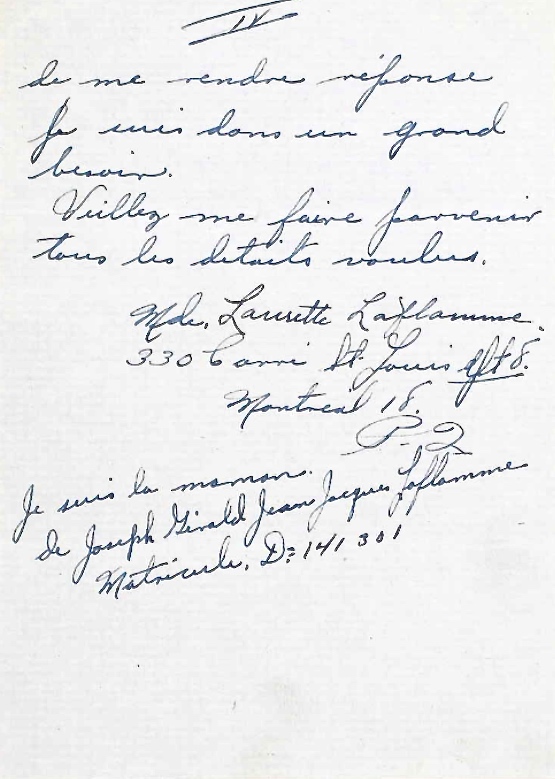 IV
de me rendre réponse
Je suis dans un grand
besoin.
Veillez me faire parvenir
tous les details voulus.
Mde. Laurette Laflamme.
330 Carré St. Louis apt 8.
Montreal 18.
P.Q
Je suis la maman.
de Joseph Girald Jean Jacques Laflamme
Matricule, D=141 301